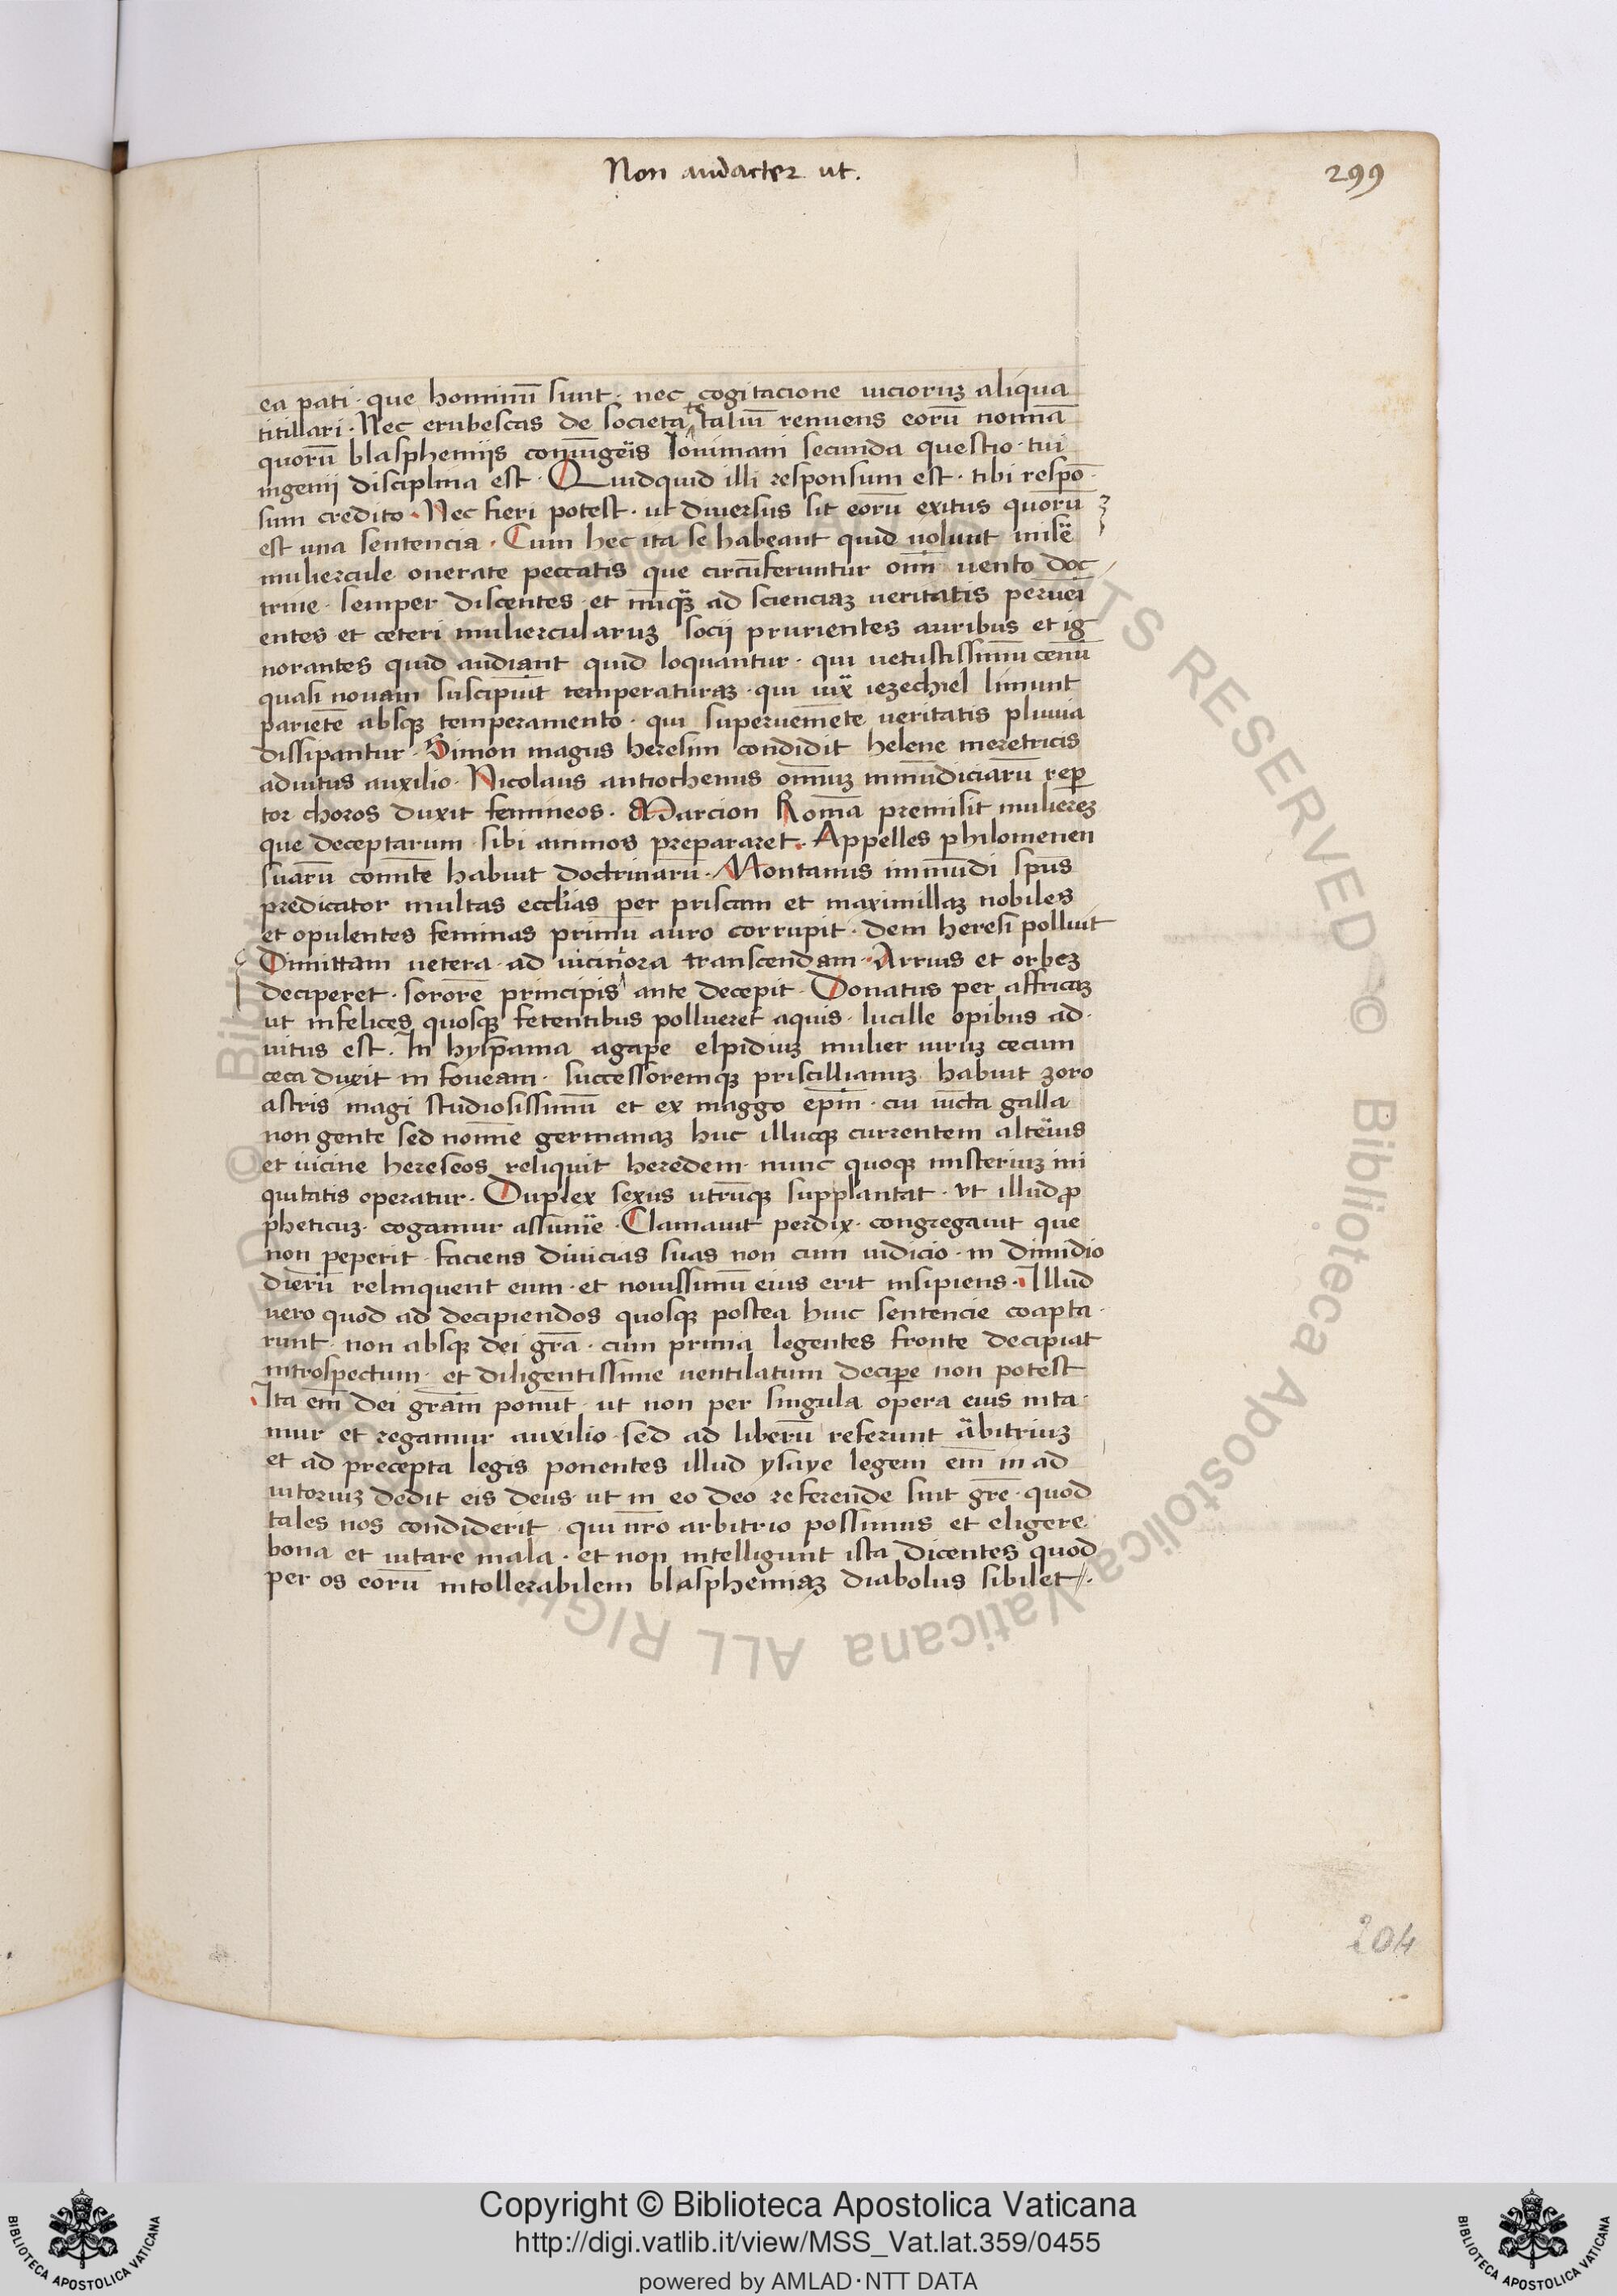 Non audacter ut.
299
ea pati · que hominū sunt · nec cogitacione uicioruꝫ aliqua
titillari · Nec erubescas de societate taliū renuens eorū nomīa
quorū blasphemijs coniūgeris Iouiniani secunda questio · tui
ingenij disciplina est · Quidquid illi responsum est · tibi respō
sum credito · Nec fieri potest · ut diuersus sit eorū exitus quorū
est una sentencia · Cum hec ita se habeant quid uolunt misẽ
muliercule onerate peccatis que circūferuntur om̄i uento doc
trine · semper discentes · et nūqꝫ ad scienciaꝫ ueritatis peruei
entes et ceteri muliercularuꝫ socij prurientes auribus et ig
norantes quid audiant quid loquantur · qui uetustissimū cenū
quasi nouam suscipiūt temperaturaꝫ · qui iux̄ iezechiel limunt
parietē absqꝫ temperamento · qui superueniēte ueritatis pluuia
dissipantur · Simon magus heresim condidit helene meretricis
adiutus auxilio · Nicolaus antiochenus omniuꝫ inmūdiciarū rep̄
tor choros duxit femineos · Marcion Romā premisit muliereꝫ
que deceptarum sibi animos prepararet · Appelles philomenen
suarū comitē habuit doctrinarū · Montanus inmūdi sp̄us
predicator multas ecclīas per priscam et maximillaꝫ nobiles
et opulentes feminas primū auro corrupit · dem heresi polluit
Dimittam uetera · ad uiciniora transcendam · Arrius et orbeꝫ
deciperet · sororē principis ante decepit · Donatus per affricaꝫ
ut infelices quosqꝫ fetentibus pollueret aquis · lucille opibus ad ·
iutus est · In hyspania agape elpidiuꝫ mulier uiruꝫ cecum
ceca duxit in foueam · successoremqꝫ priscillianuꝫ habuit zoro
astris magi studiosissimū et ex maggo ep̄m · cui iūcta galla
non gente sed nomīe germanaꝫ huc illucqꝫ currentem alterius
et uicine hereseos reliquit heredem · nunc quoqꝫ misteriuꝫ ini
quitatis operatur · Duplex sexus utrūqꝫ supplantat · ut illud ꝓ
pheticuꝫ · cogamur assumẽ · Clamauit perdix · congregauit que
non peperit · faciens diuicias suas non cum iudicio · in dimidio
dierū relinquent eum · et nouissimū eius erit insipiens · Illud
uero quod ad decipiendos quosqꝫ postea huic sentencie coapta ·
runt · non absqꝫ dei grā · cum prima legentes fronte decipiat
introspectum · et diligentissime uentilatum decipe non potest
Ita em̄ dei gram̄ ponūt · ut non per singula opera eius nita ·
mur et regamur auxilio · sed ad liberū referunt äbitriuꝫ
et ad precepta legis ponentes illud ysaye legem em̄ in ad
iutoriuꝫ dedit eis deus · ut in eo deo referende sint grē · quod
tales nos condiderit · qui nr̄o arbitrio possimus et eligere
bona et uitare mala · et non intelligunt ista dicentes quod
per os eorū intollerabilem blasphemiaꝫ diabolus sibilet ·
204
Copyright © Biblioteca Apostolica Vaticana
http://digi.vatlib.it/view/MSS_Vat.lat.359/0455
powered by AMLAD·NTT DATA
BIBLIOTECA APOSTOLICA VATICANA
BIBLIOTECA APOSTOLICA VATICANA